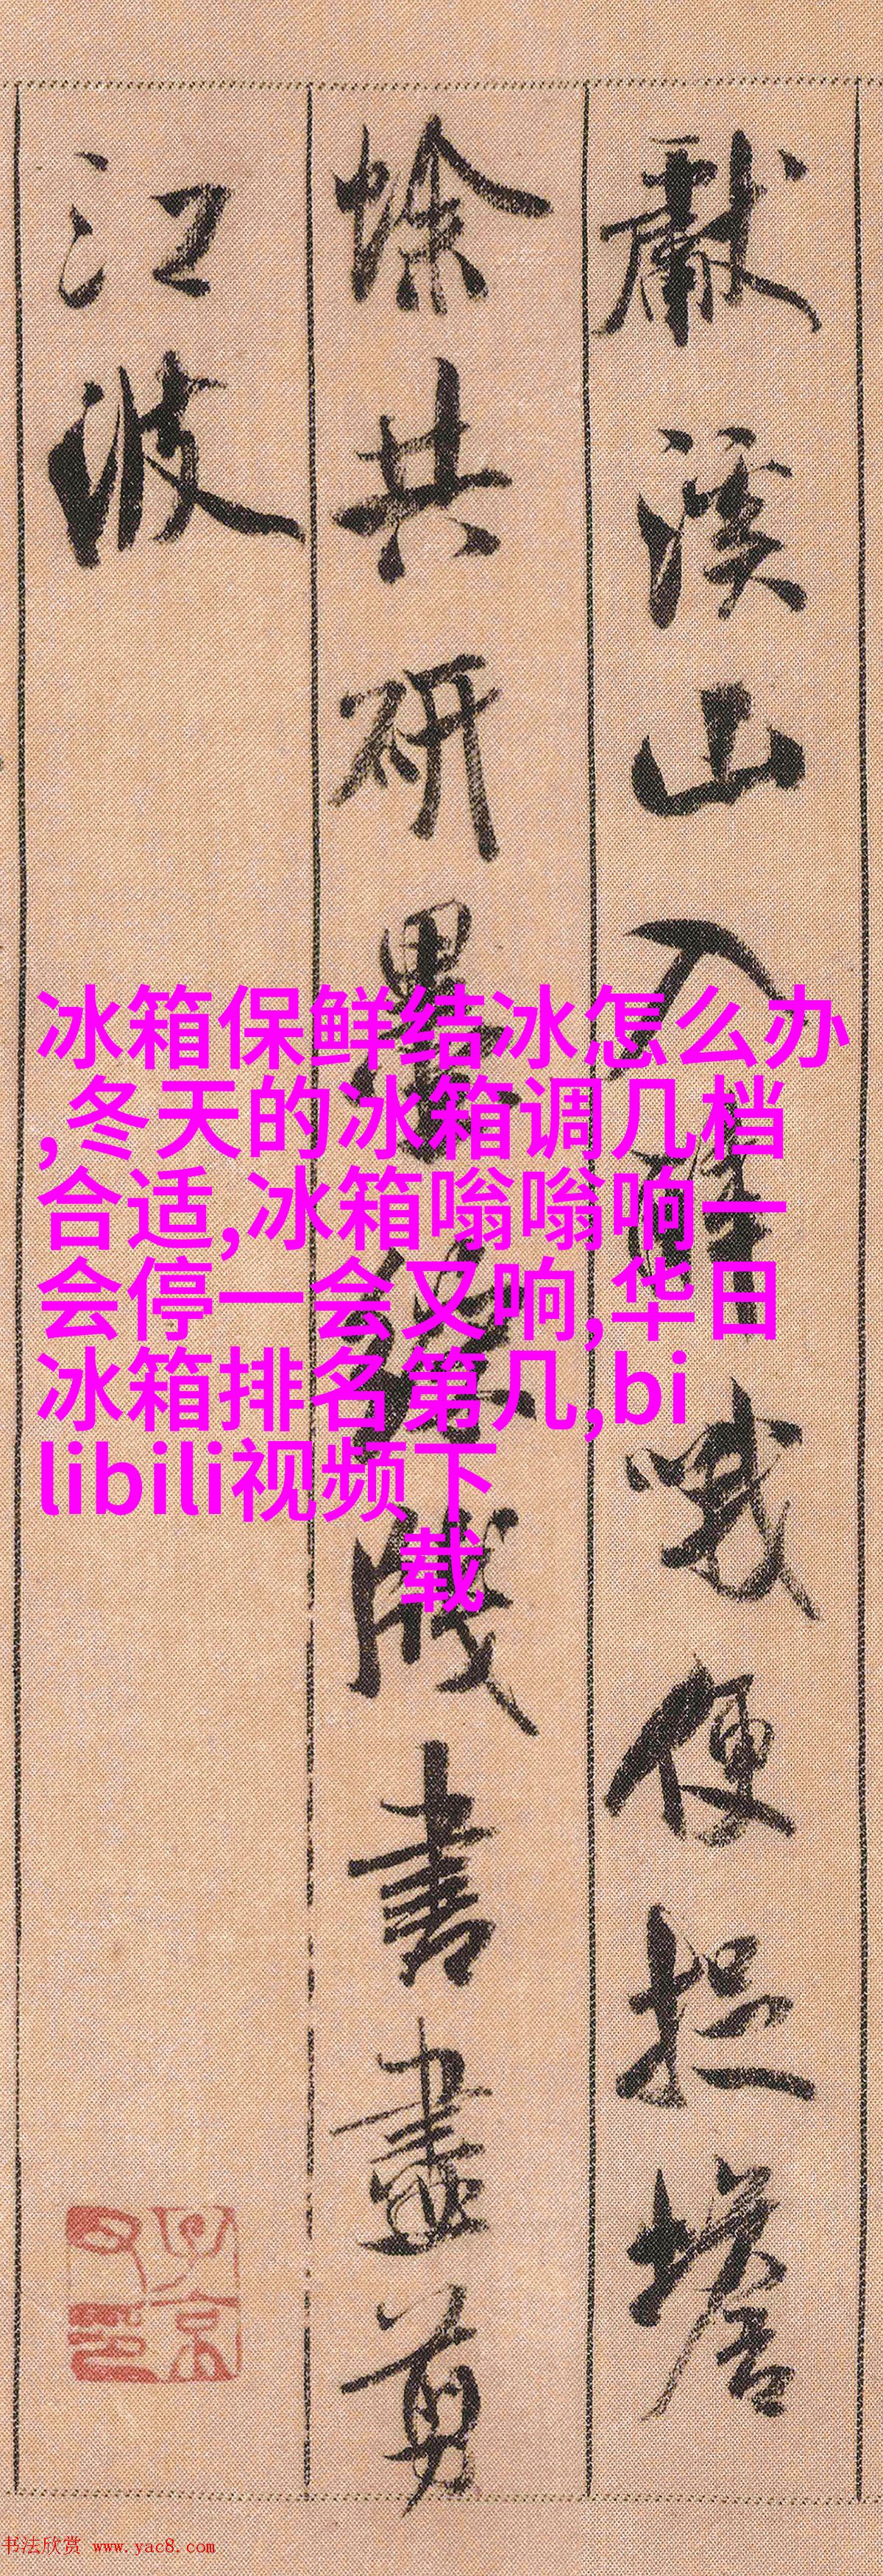 獻溪山入醉哦便捉蟾
蜍共研墨綵牋書盡剪
江波
冰箱保鲜结冰怎么办
,冬天的冰箱调几档
合适,冰箱嗡嗡响一
会停一会又响,华日
冰箱排名第几,bi
libili视频下
载
书法欣赏 www.yac8.com